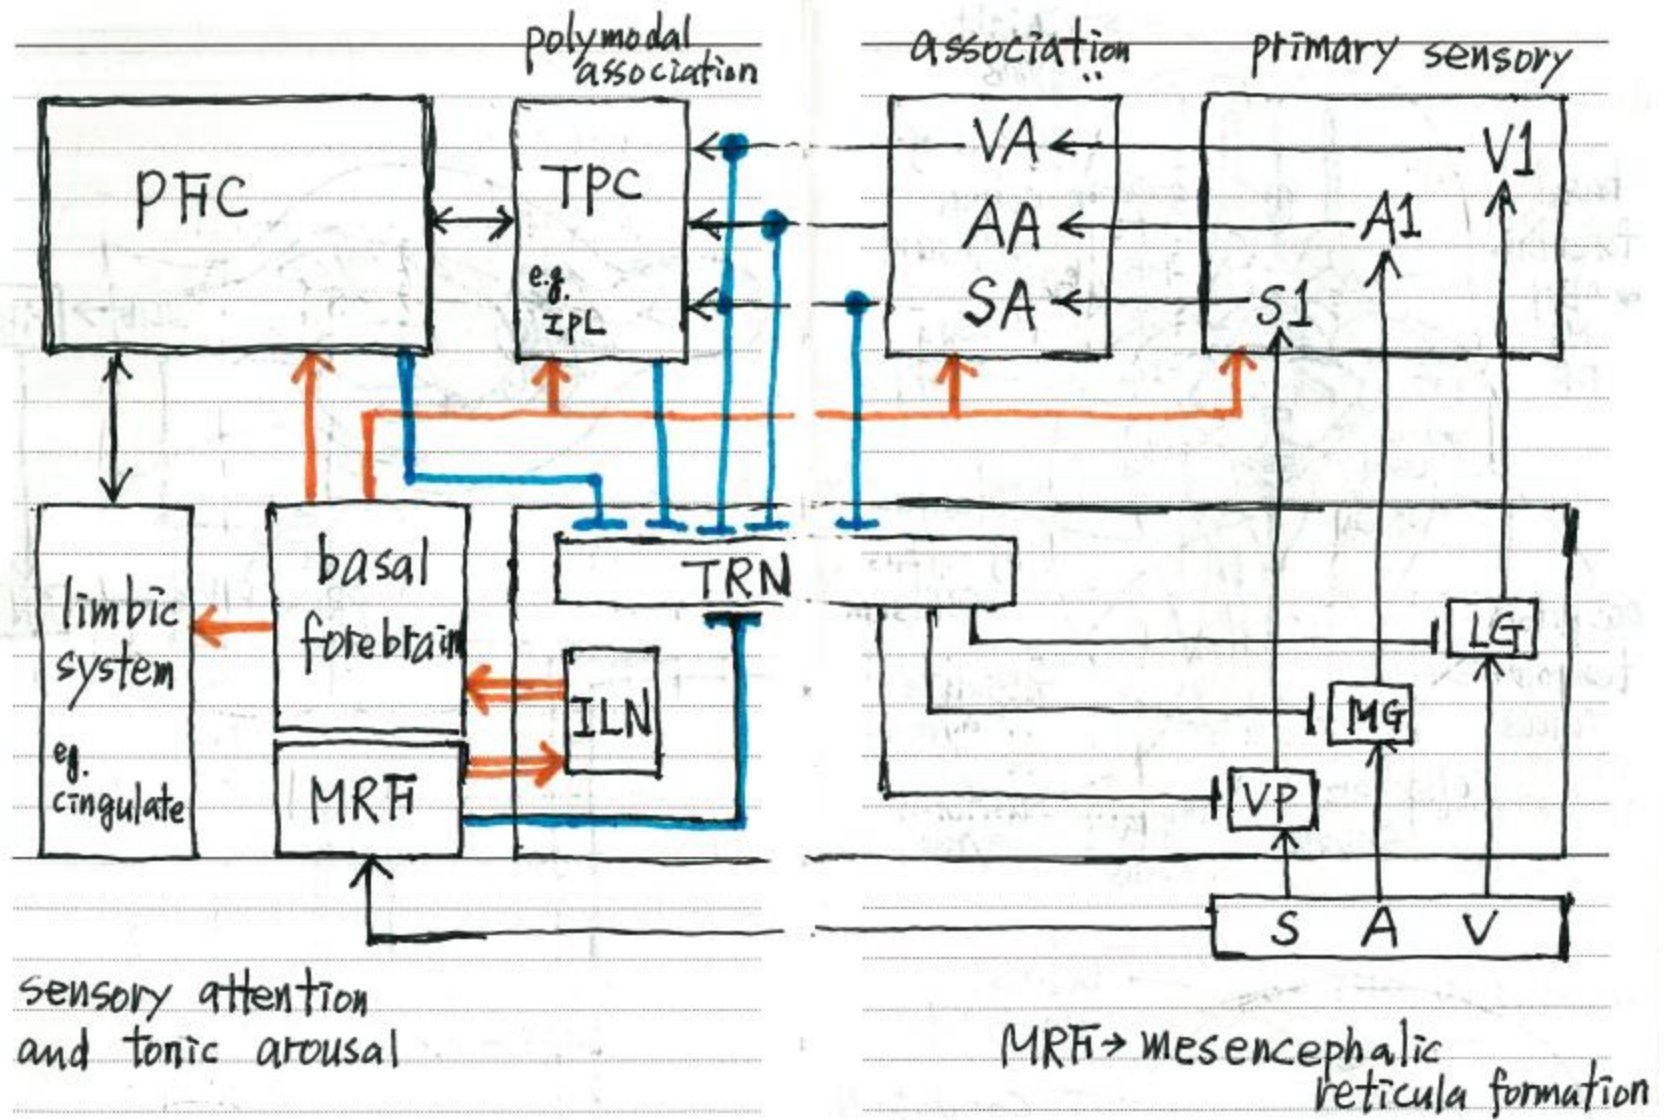 polymodal
association
association
primary sensory
PFC
TPC
e.g.
IPL
VA
AA
SA
V1
A1
S1
limbic
system
eg.
cingulate
basal
forebrain
MRF
TRN
ILN
LG
MG
VP
S A V
sensory attention
and tonic arousal
MRF→ mesencephalic
reticula formation